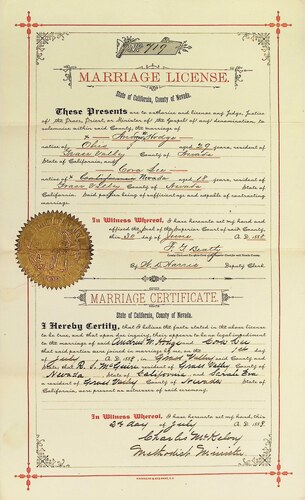 No. 717
MARRIAGE LICENSE.
State of California, County of Nevada.
These Presents are to authorize and license any Judge, Justice
of the Peace, Priest, or Minister of the Gospel of any denomination, to
solemnize within said County, the marriage of
native of Ohio aged 29 years, resident of
Grass Valley County of Nevada
State of California, and
Cora Dee
native of Nevada aged 18 years, resident of
Grass Valley County of Nevada State of
California, said parties being of sufficient age and capable of contracting
marriage.
In Witness Whereof, I have hereunto set my hand and
affixed the seal of the Superior Court of said County,
this 30 day of June A. D. 188
F. G. Beatty
By Deputy Clerk.
MARRIAGE CERTIFICATE.
State of California, County of Nevada.
I Hereby Certify, that I believe the facts stated in the above license
to be true, and that upon due inquiry, there appears to be no legal impediment
to the marriage of said Andrew W. Hodge and Cora Dee
that said parties were joined in marriage by me, on the 2nd day of
July A. D. 188 in Grass Valley said County and
State; that R. S. McGuire resident of Grass Valley
Nevada State of California and Sarah
a resident of Grass Valley County of Nevada State of
California, were present as witnesses of said ceremony.
In Witness Whereof, I have hereunto set my hand, this
2nd day of July A. D. 188
Charles McKelvey
Methodist Minister